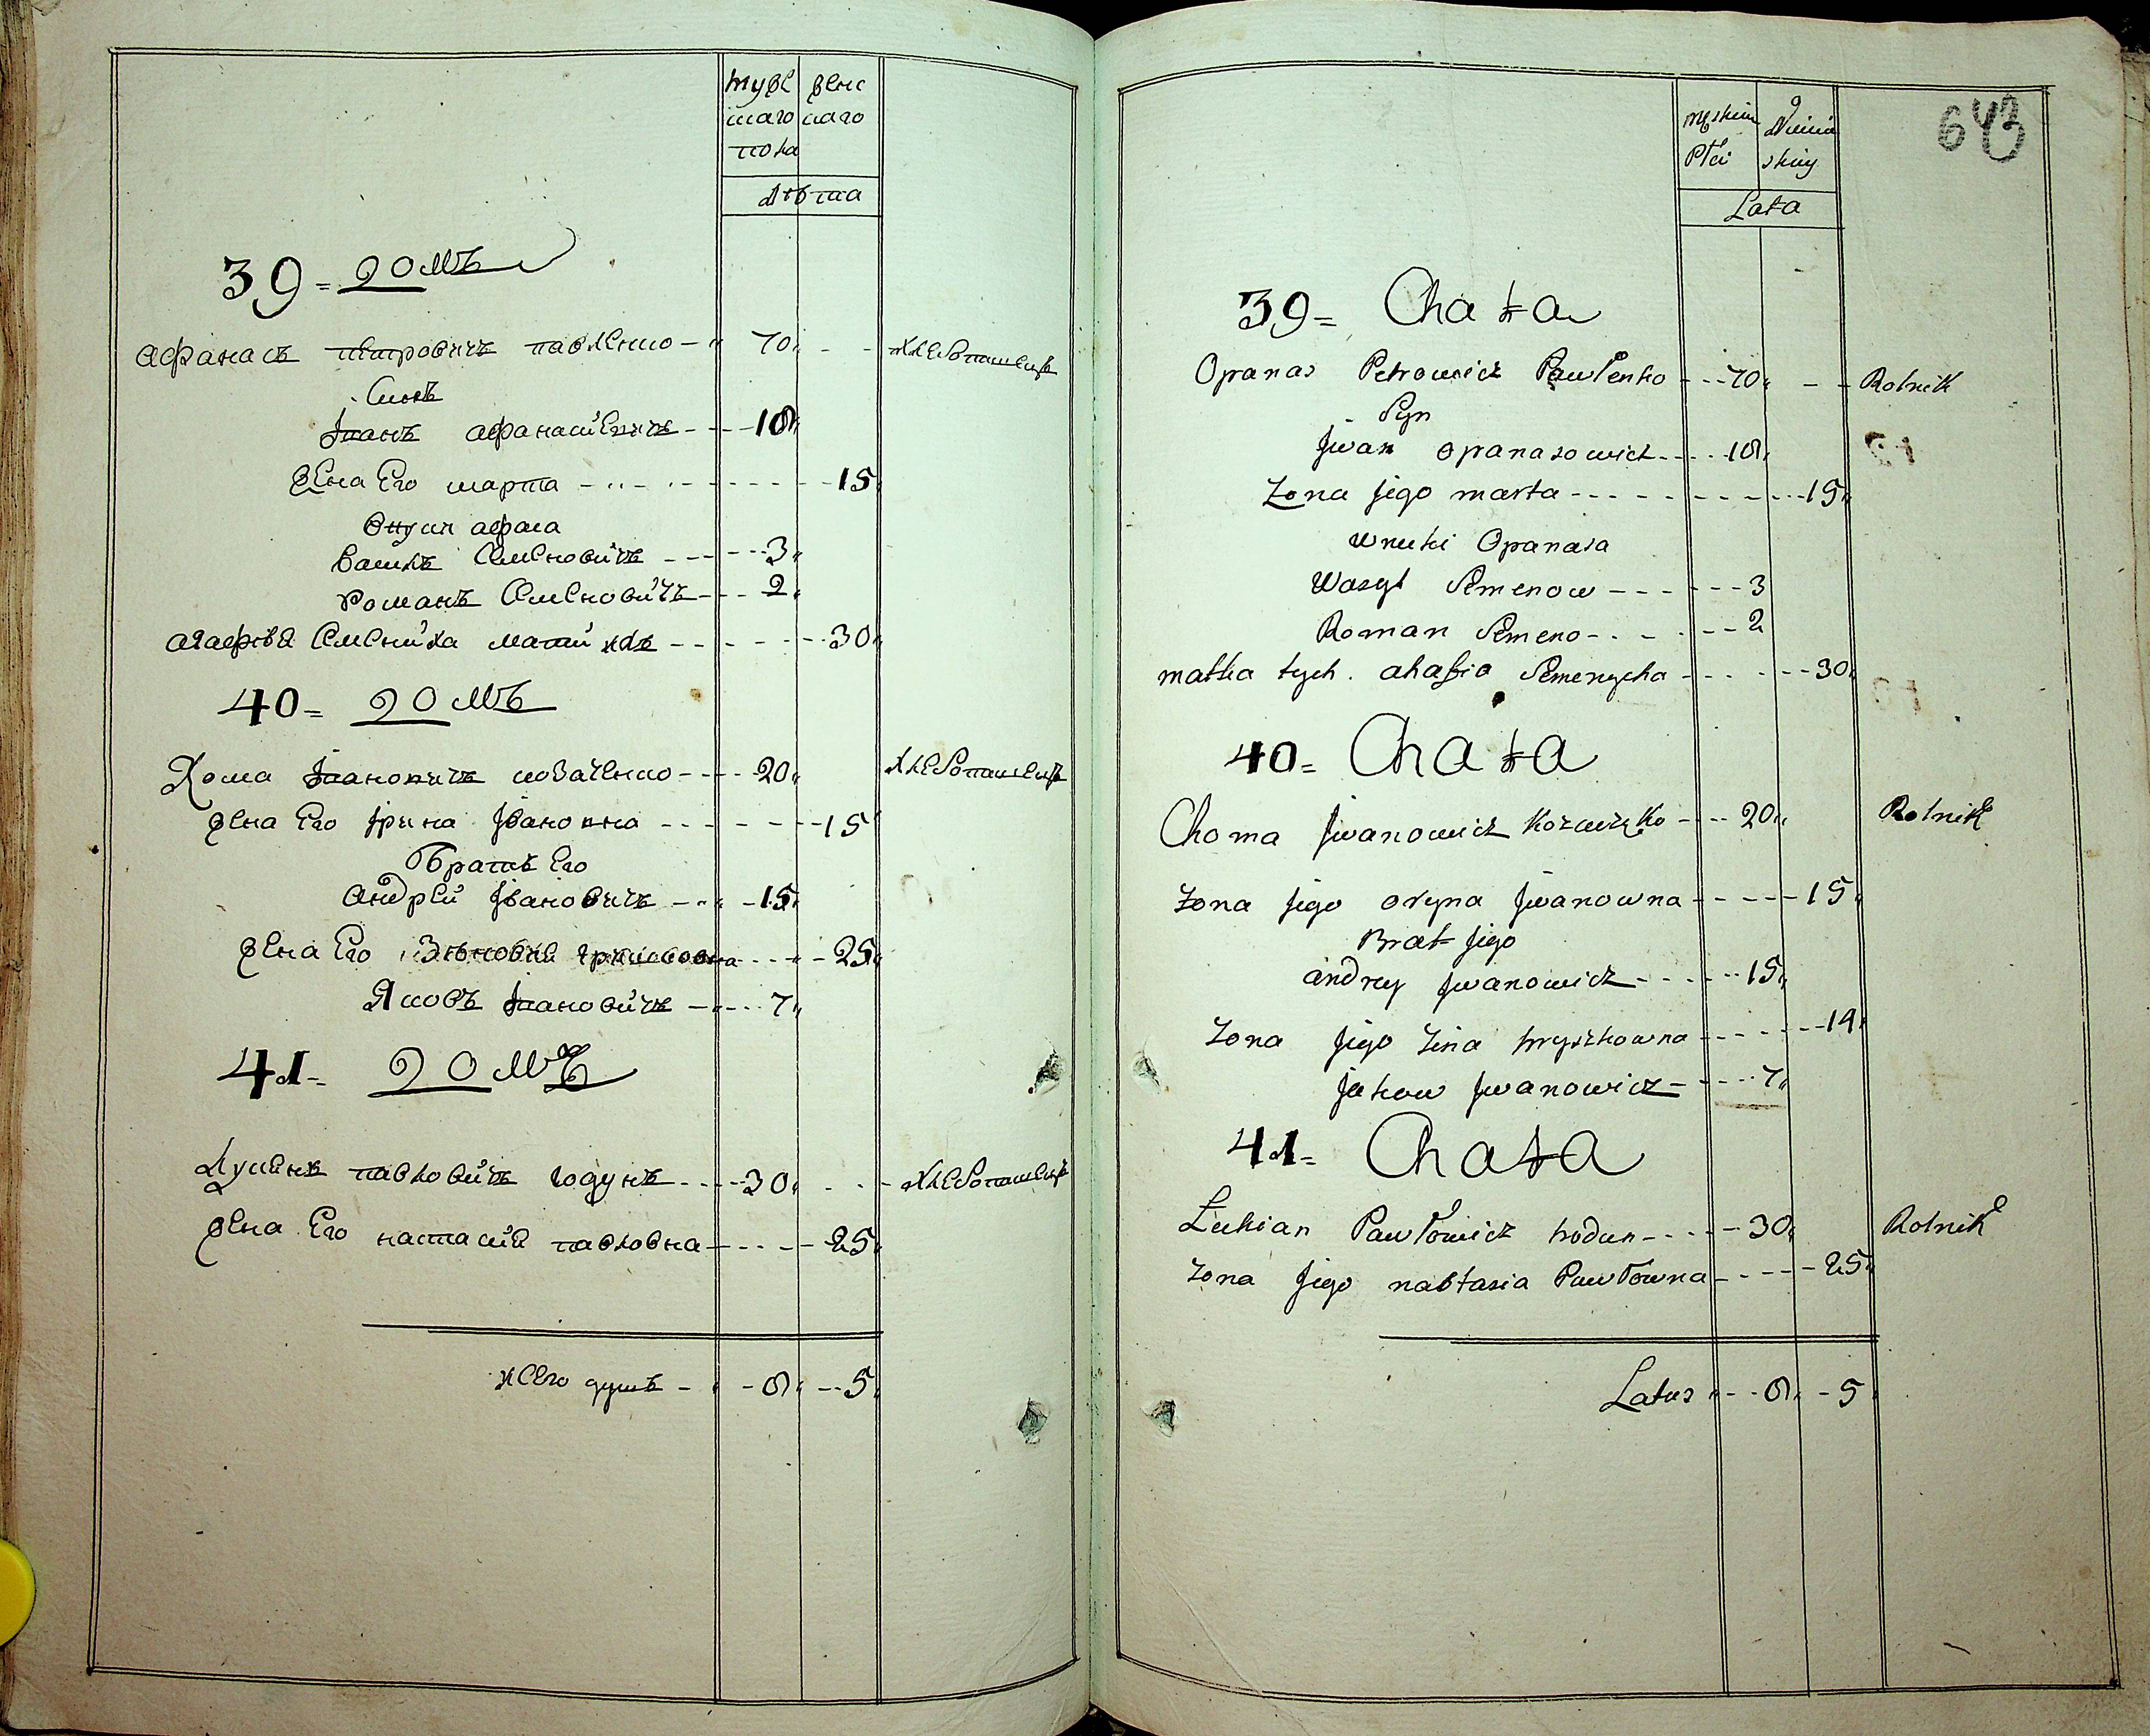 мужескаго пола
женскаго
Лѣта
39 = домъ
Афанасъ петровичъ павленко - 70 - - хлебопашецъ
Синъ
Іванъ афанасиевичъ - 18
жена Его марта - 15
Внуки афана
Василъ Семеновичъ - 3
Романъ Семеновичъ - 2
агафія Семениха мати ихъ - 30
40 = домъ
Хома Івановичъ козаченко - 20 хлебопашецъ
жена Его Ірина Івановна - 15
Братъ Его
Андрей Івановичъ - 15
жена Его Зѣновия гришковна - 25
Яковъ Івановичъ - 7
41 = домъ
Лукянъ павловичъ годунъ - 30 - - хлебопашецъ
жена Его настасия павловна - 25
всего душъ - 8 - 5
643
męskiey Płci
Lata
39 = Chata
Opanas Petrowicz Pawłenko - 70 - - Rolnik
Syn
Jwan opanasowicz - 18
żona jego marta - 15
wnuki Opanasa
Wasyl Semenow - 3
Roman Semeno - 2
matka tych. ahafia Semenycha - 30
40 = Chata
Choma Jwanowicz - 20 Rolnik
żona jego oryna Jwanowna - 15
Brat jego
andrey Jwanowicz - 15
żona jego Zina hryszkowna - 19
Jakow Jwanowicz - 7
41 = Chata
Łukian Pawłowicz hodun - 30 Rolnik
żona jego nastasia Pawłowna - 25
Latus - 8 - 5